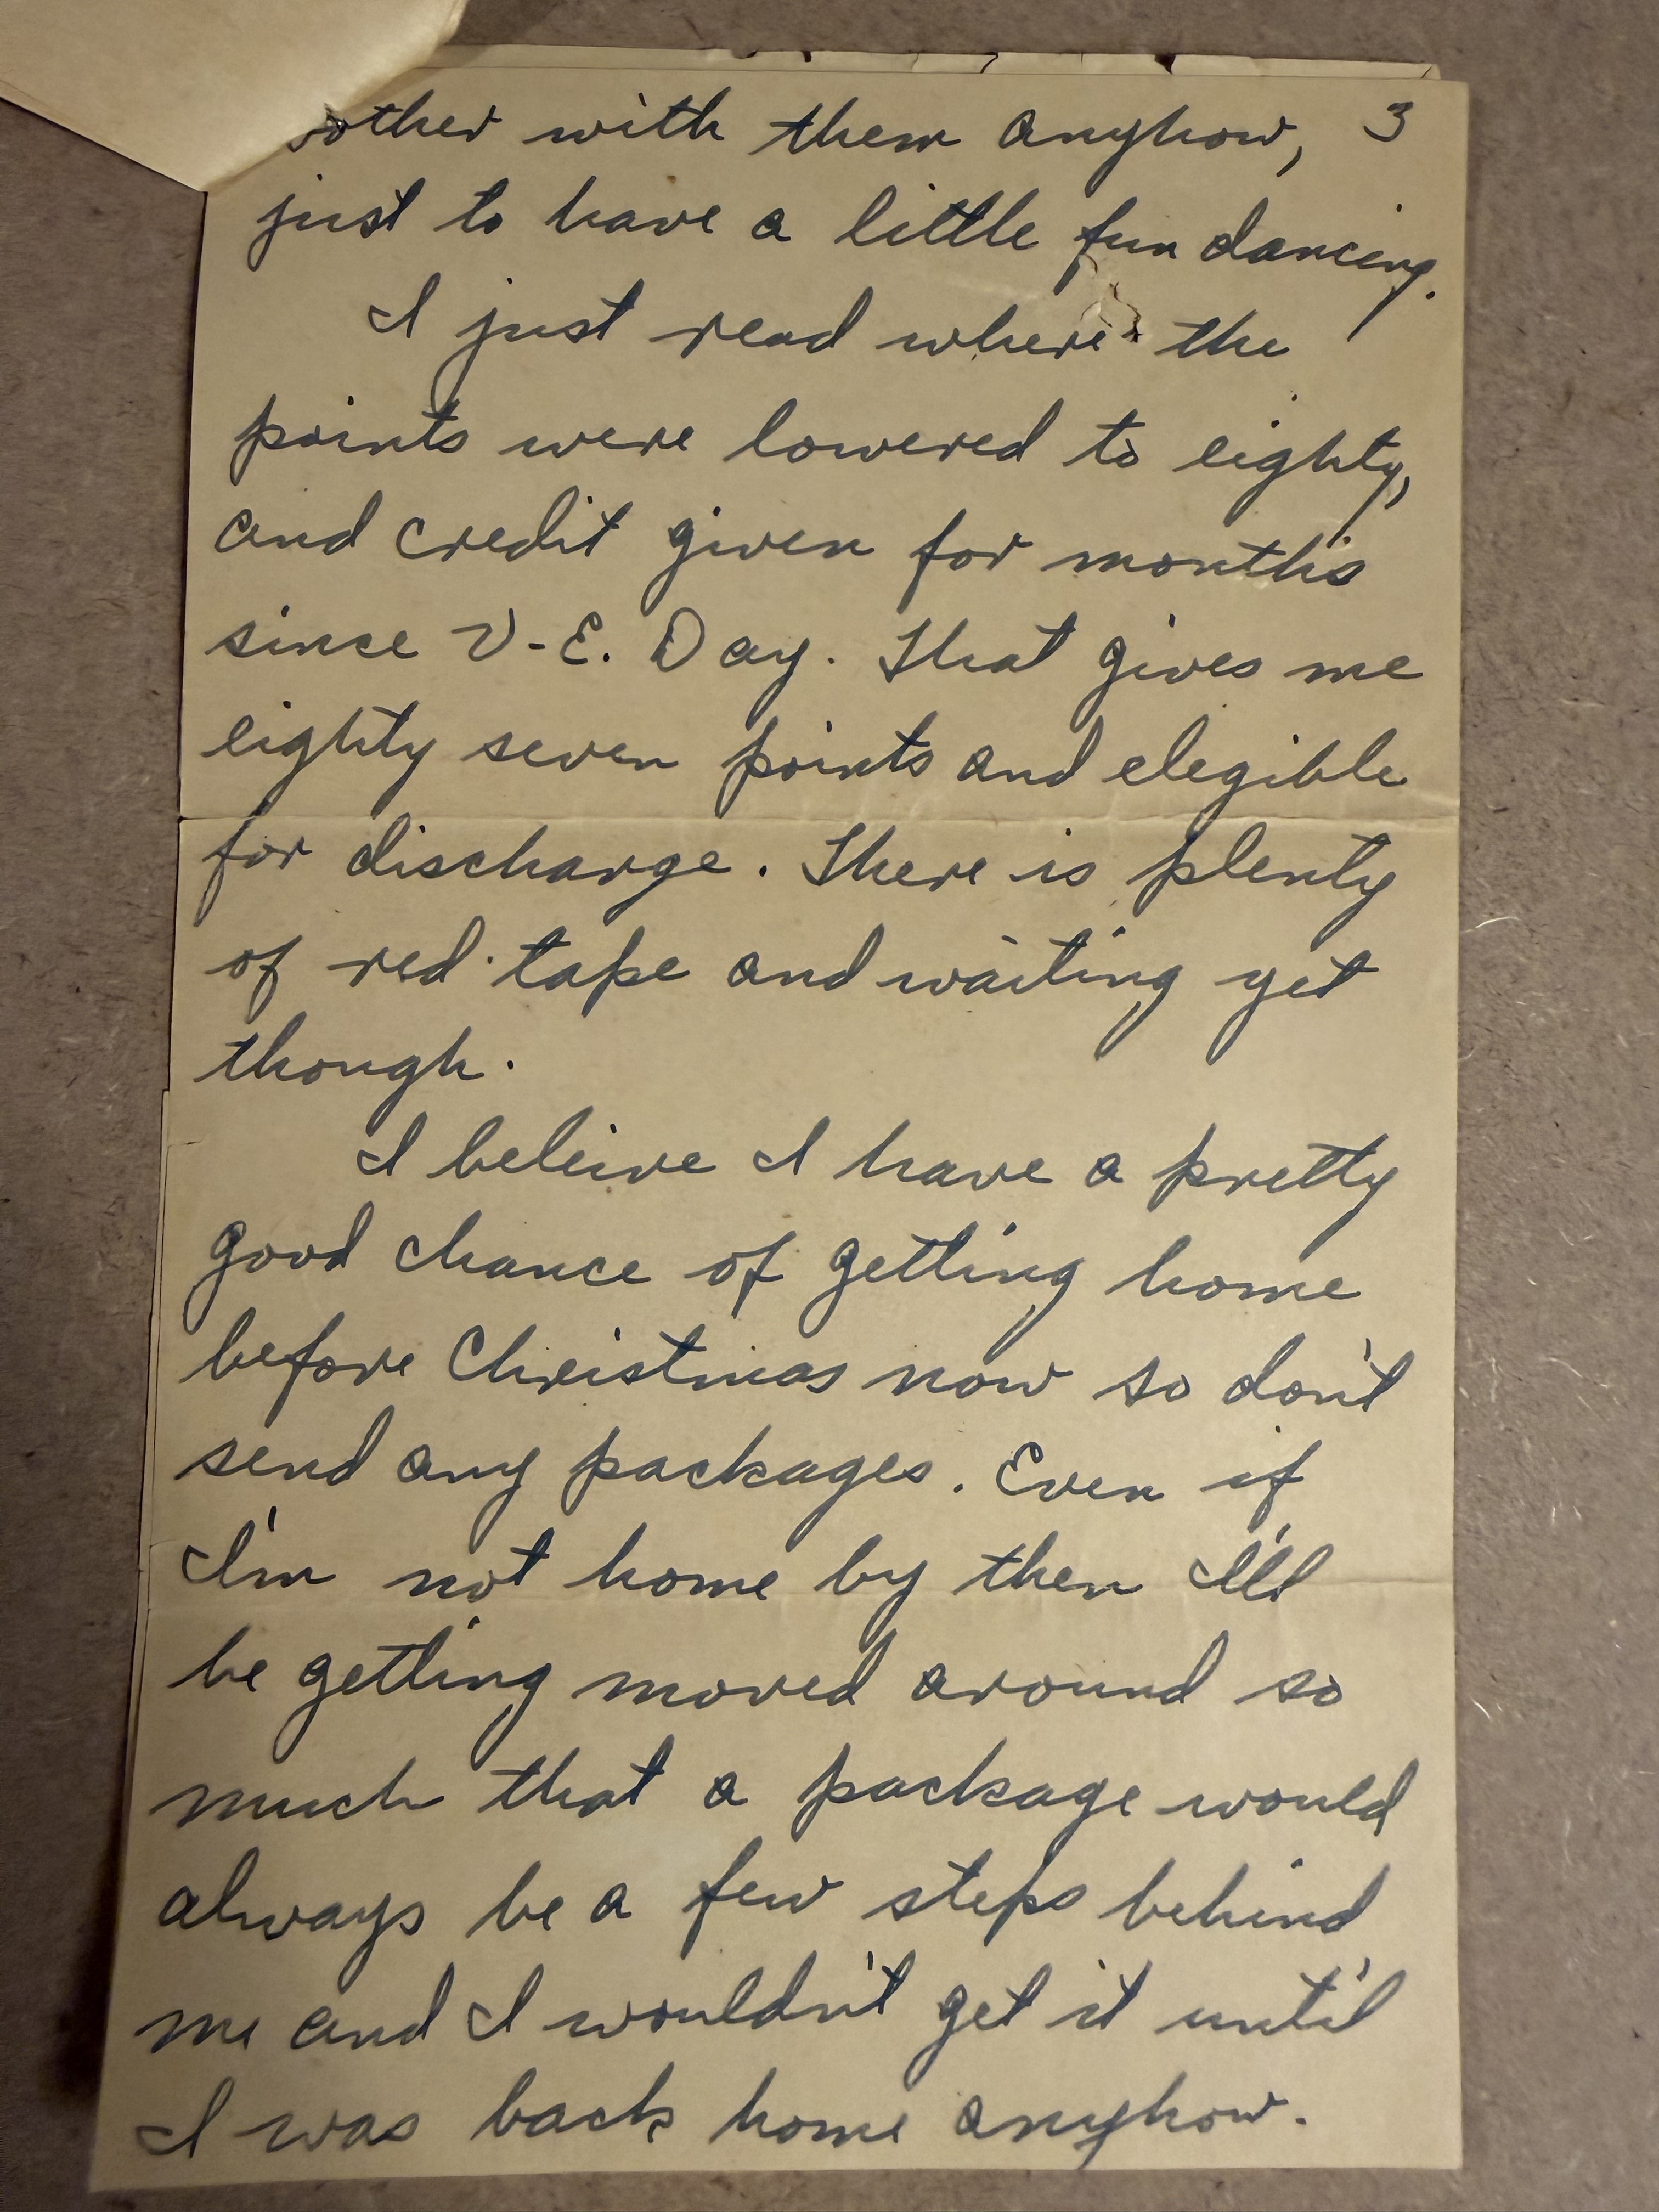 bother with them anyhow, 3
just to have a little fun dancing.
I just read where the
points were lowered to eighty,
and credit given for months
since V-E. Day. That gives me
eighty seven points and elegible
for discharge. There is plenty
of red tape and waiting yet
though.
I beleive I have a pretty
good chance of getting home
before Christmas now so don't
send any packages. Even if
I'm not home by then I'll
be getting moved around so
much that a package would
always be a few steps behind
me and I wouldn't get it until
I was back home anyhow.